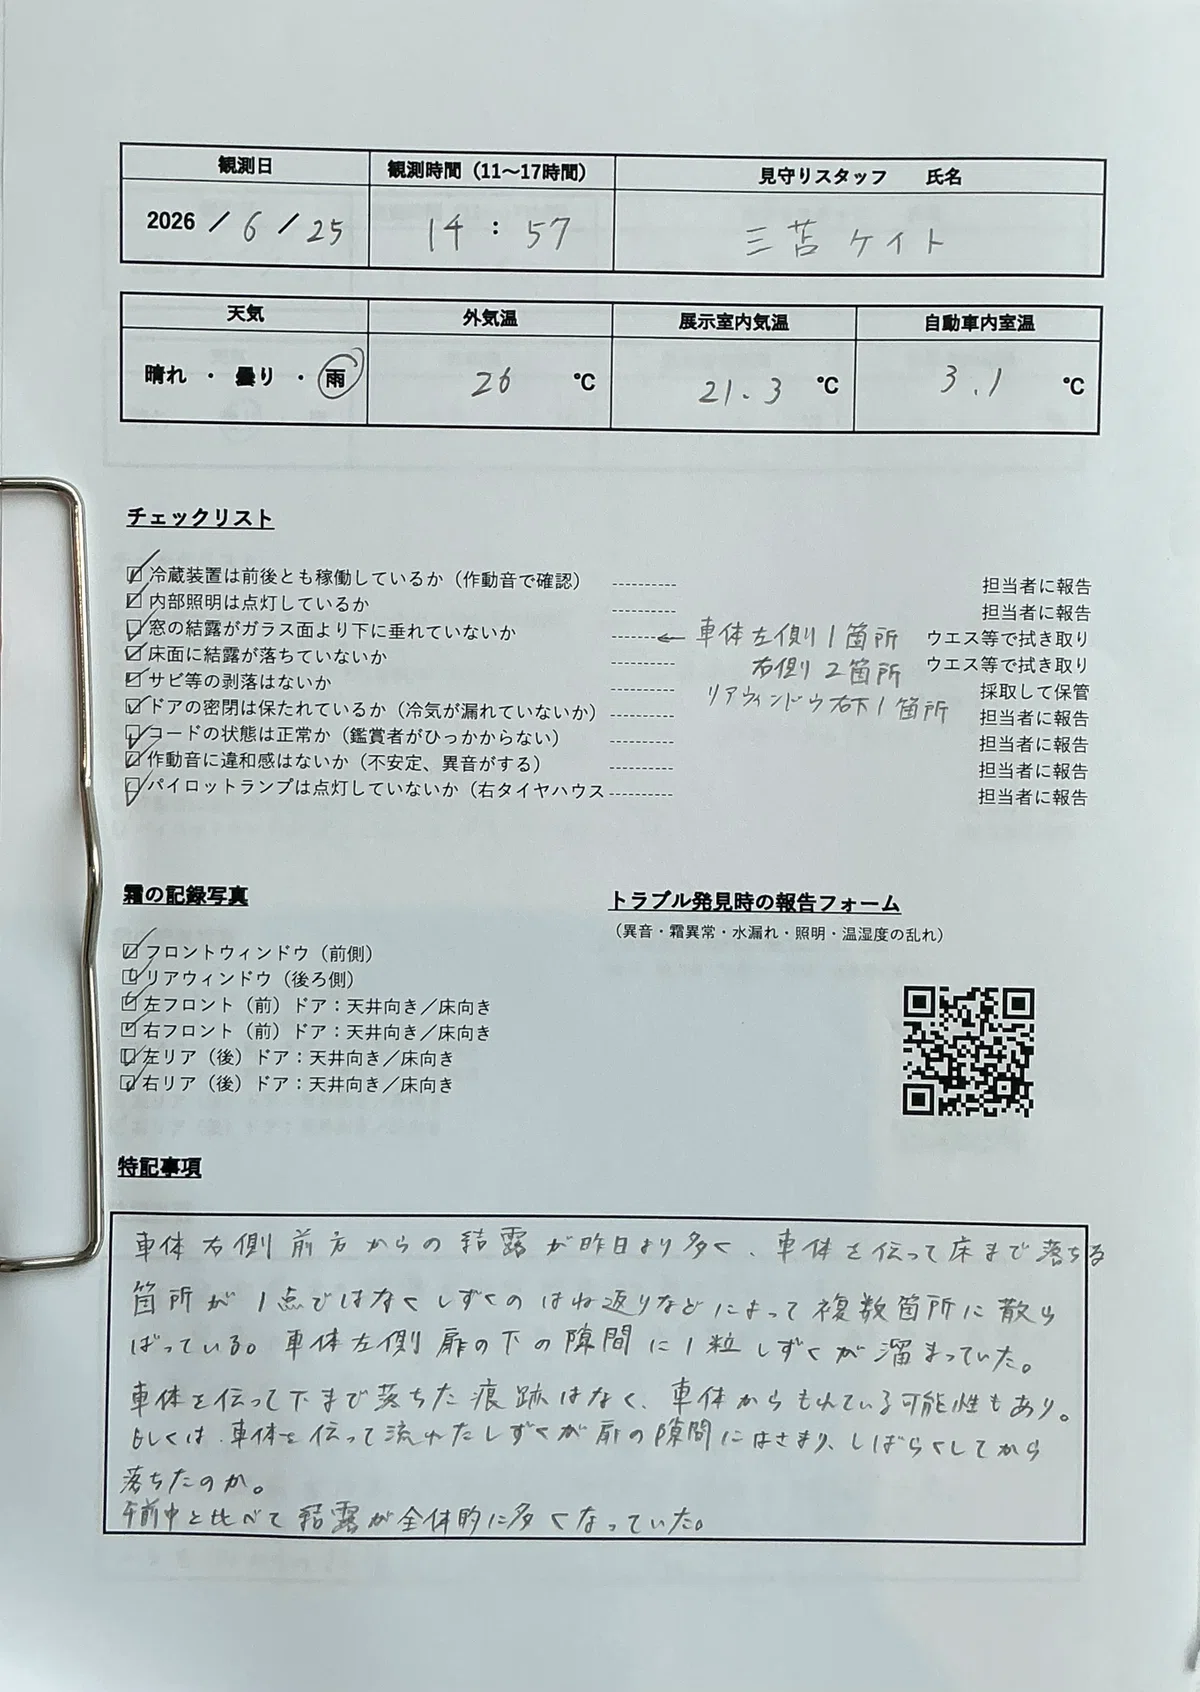 観測日 観測時間（11～17時間） 見守りスタッフ 氏名
2026 / 6 / 25 14 : 57 三苫 ケイト
天気 外気温 展示室内気温 自動車内室温
晴れ ・ 曇り ・ 雨 26 ℃ 21.3 ℃ 3.1 ℃
チェックリスト
冷蔵装置は前後とも稼働しているか（作動音で確認） ---------- 担当者に報告
内部照明は点灯しているか ---------- 担当者に報告
窓の結露がガラス面より下に垂れていないか ---------- ← 車体左側1箇所 ウエス等で拭き取り
床面に結露が落ちていないか ---------- 右側2箇所 ウエス等で拭き取り
サビ等の剥落はないか ---------- リアウィンドウ右下1箇所 採取して保管
ドアの密閉は保たれているか（冷気が漏れていないか） ---------- 担当者に報告
コードの状態は正常か（鑑賞者がひっかからない） ---------- 担当者に報告
作動音に違和感はないか（不安定、異音がする） ---------- 担当者に報告
パイロットランプは点灯していないか（右タイヤハウス ---------- 担当者に報告
霜の記録写真
フロントウィンドウ（前側）
リアウィンドウ（後ろ側）
左フロント（前）ドア：天井向き／床向き
右フロント（前）ドア：天井向き／床向き
左リア（後）ドア：天井向き／床向き
右リア（後）ドア：天井向き／床向き
トラブル発見時の報告フォーム
（異音・霜異常・水漏れ・照明・温湿度の乱れ）
特記事項
車体右側前方からの結露が昨日より多く、車体を伝って床まで落ちる
箇所が1点ではなくしずくのはね返りなどによって複数箇所に散ら
ばっている。車体左側扉の下の隙間に1粒しずくが溜まっていた。
車体を伝って下まで落ちた痕跡はなく、車体からもれている可能性もあり。
もしくは、車体を伝って流れたしずくが扉の隙間にはさまり、しばらくしてから
落ちたのか。
午前中と比べて結露が全体的に多くなっていた。